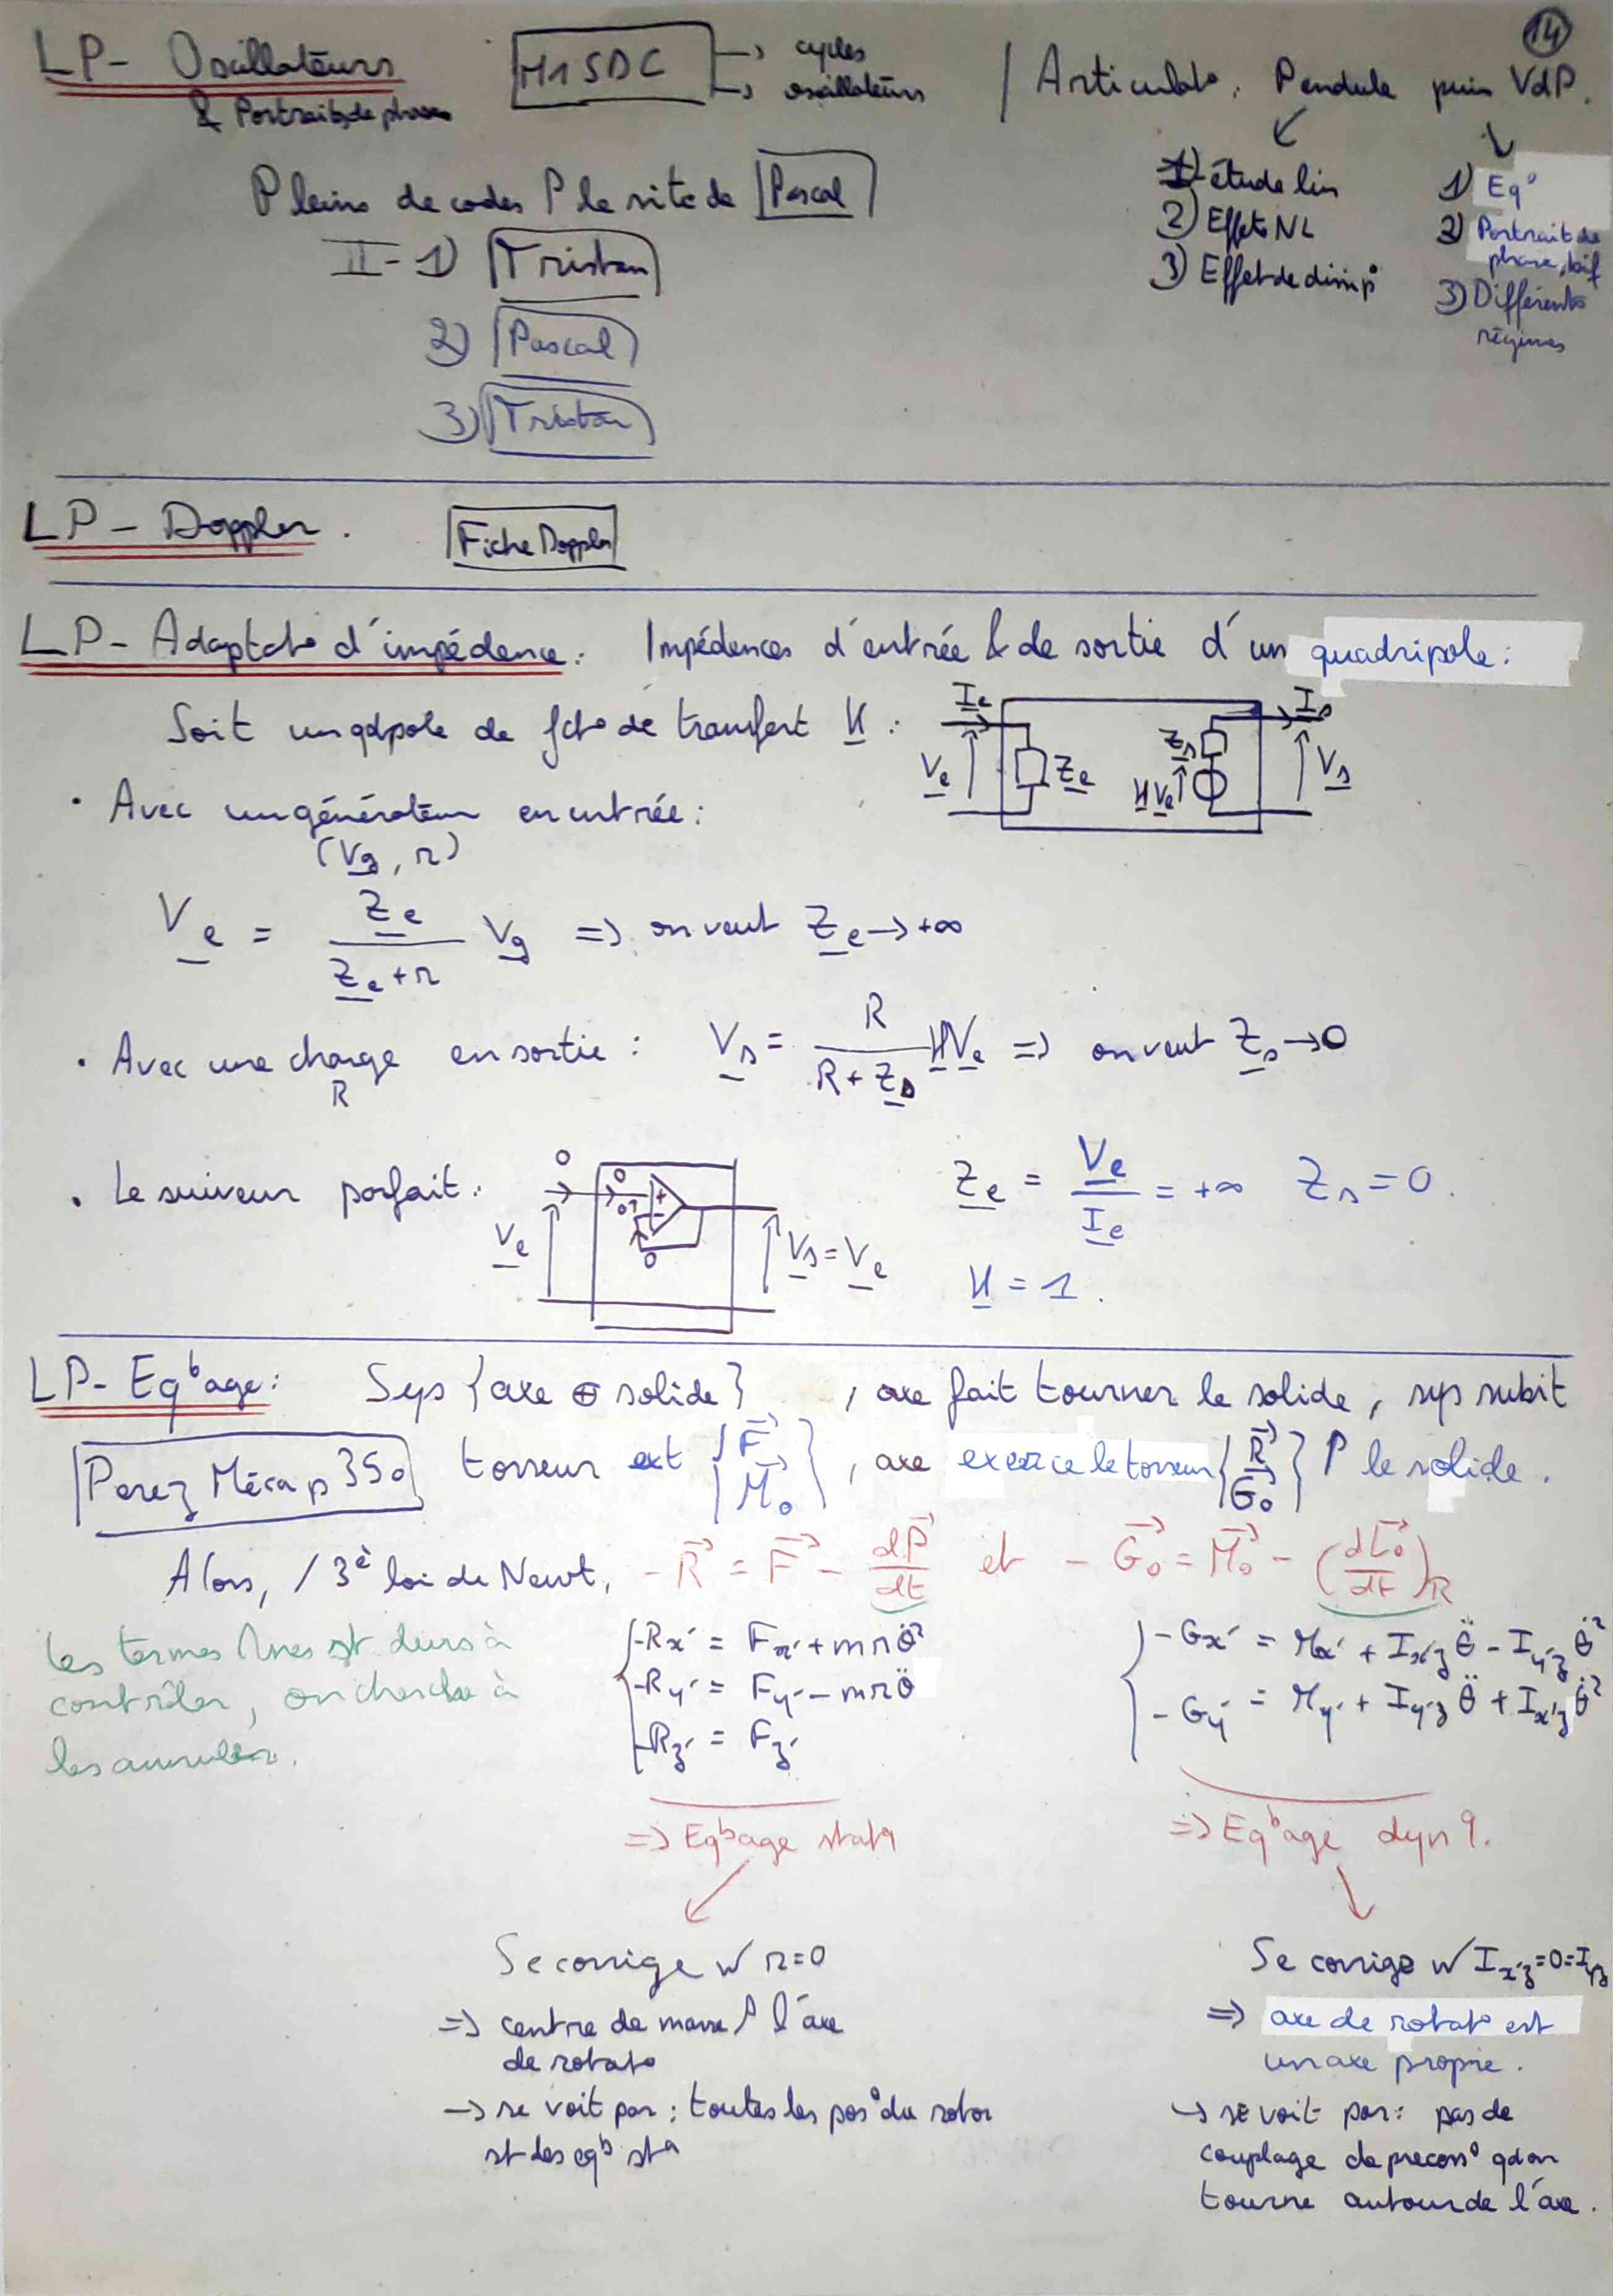 14
LP- Oscillateurs
& Portraits de phases
M1SDC → cycles
→ oscillateurs
/ Articulat°. Pendule puis VdP.
1) étude lin
2) Effets NL
3) Effet de dissip°
1) Eq°
2) Portrait de phase, bif
3) Différents régimes
Pleins de codes P le site de Pascal
II-1) Tristan
2) Pascal
3) Tristan
LP- Doppler. Fiche Doppler
LP- Adaptat° d'impédence: Impédences d'entrée & de sortie d'un quadripole:
Soit un qdpole de fct° de transfert H :
Ie Is
Ve Ze Zs HVe Vs
· Avec un générateur en entrée:
(Vg, r)
Ve = Ze / (Ze + r) Vg => on veut Ze → +∞
· Avec une charge en sortie : Vs = R / (R + Zs) HVe => on veut Zs → 0
R
· Le suiveur parfait:
0 0 0 0 + -
Ve Vs = Ve
Ze = Ve / Ie = +∞ Zs = 0.
H = 1.
LP- Eqbage: Sys {axe ⊕ solide} , axe fait tourner le solide, sys subit
Perez Méca p350 torseur ext {F M0} , axe exerce le torseur {R G0} P le solide.
Alors, / 3è loi de Newt, -R = F - dP/dt et - G0 = M0 - (dL0/dt)R
les termes st durs à
contrôler, on cherche à
les annuler.
-Rx' = Fx' + mrθ̇²
-Ry' = Fy' - mrθ̈
-Rz' = Fz'
-Gx' = Mx' + Ix'z θ̈ - Iy'z θ̇²
-Gy' = My' + Iy'z θ̈ + Ix'z θ̇²
=> Eqbage statq
=> Eqbage dynq.
Se corrige w r=0
=> centre de masse P l'axe
de rotat°
→ se voit par : toutes les pos° du rotor
st des eqb sta
Se corrige w Ix'z=0=Iy'z
=> axe de rotat° est
un axe propre.
→ se voit par: pas de
couplage de precess° qd on
tourne autour de l'axe.